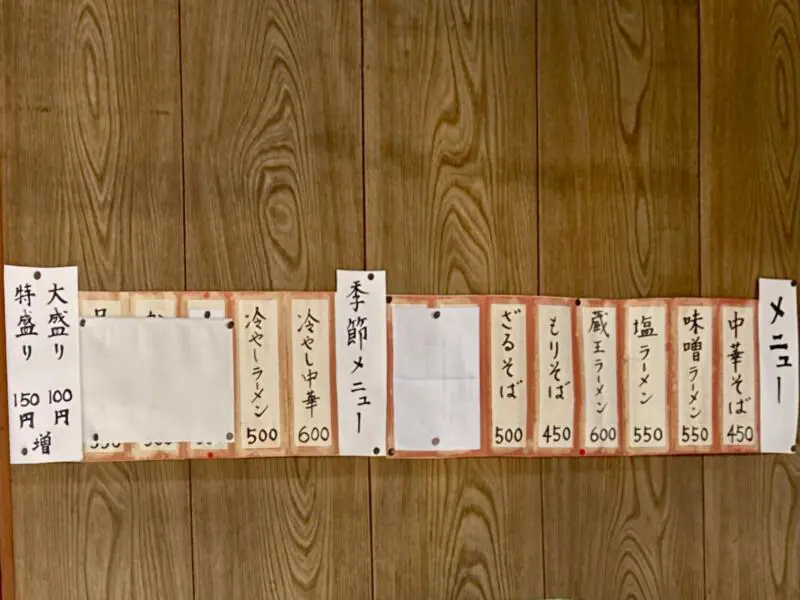 メニュー
中華そば 450
味噌ラーメン 550
塩ラーメン 550
蔵王ラーメン 600
もりそば 450
ざるそば 500
季節メニュー
冷やし中華 600
冷やしラーメン 500
大盛り 100円
特盛り 150円
増